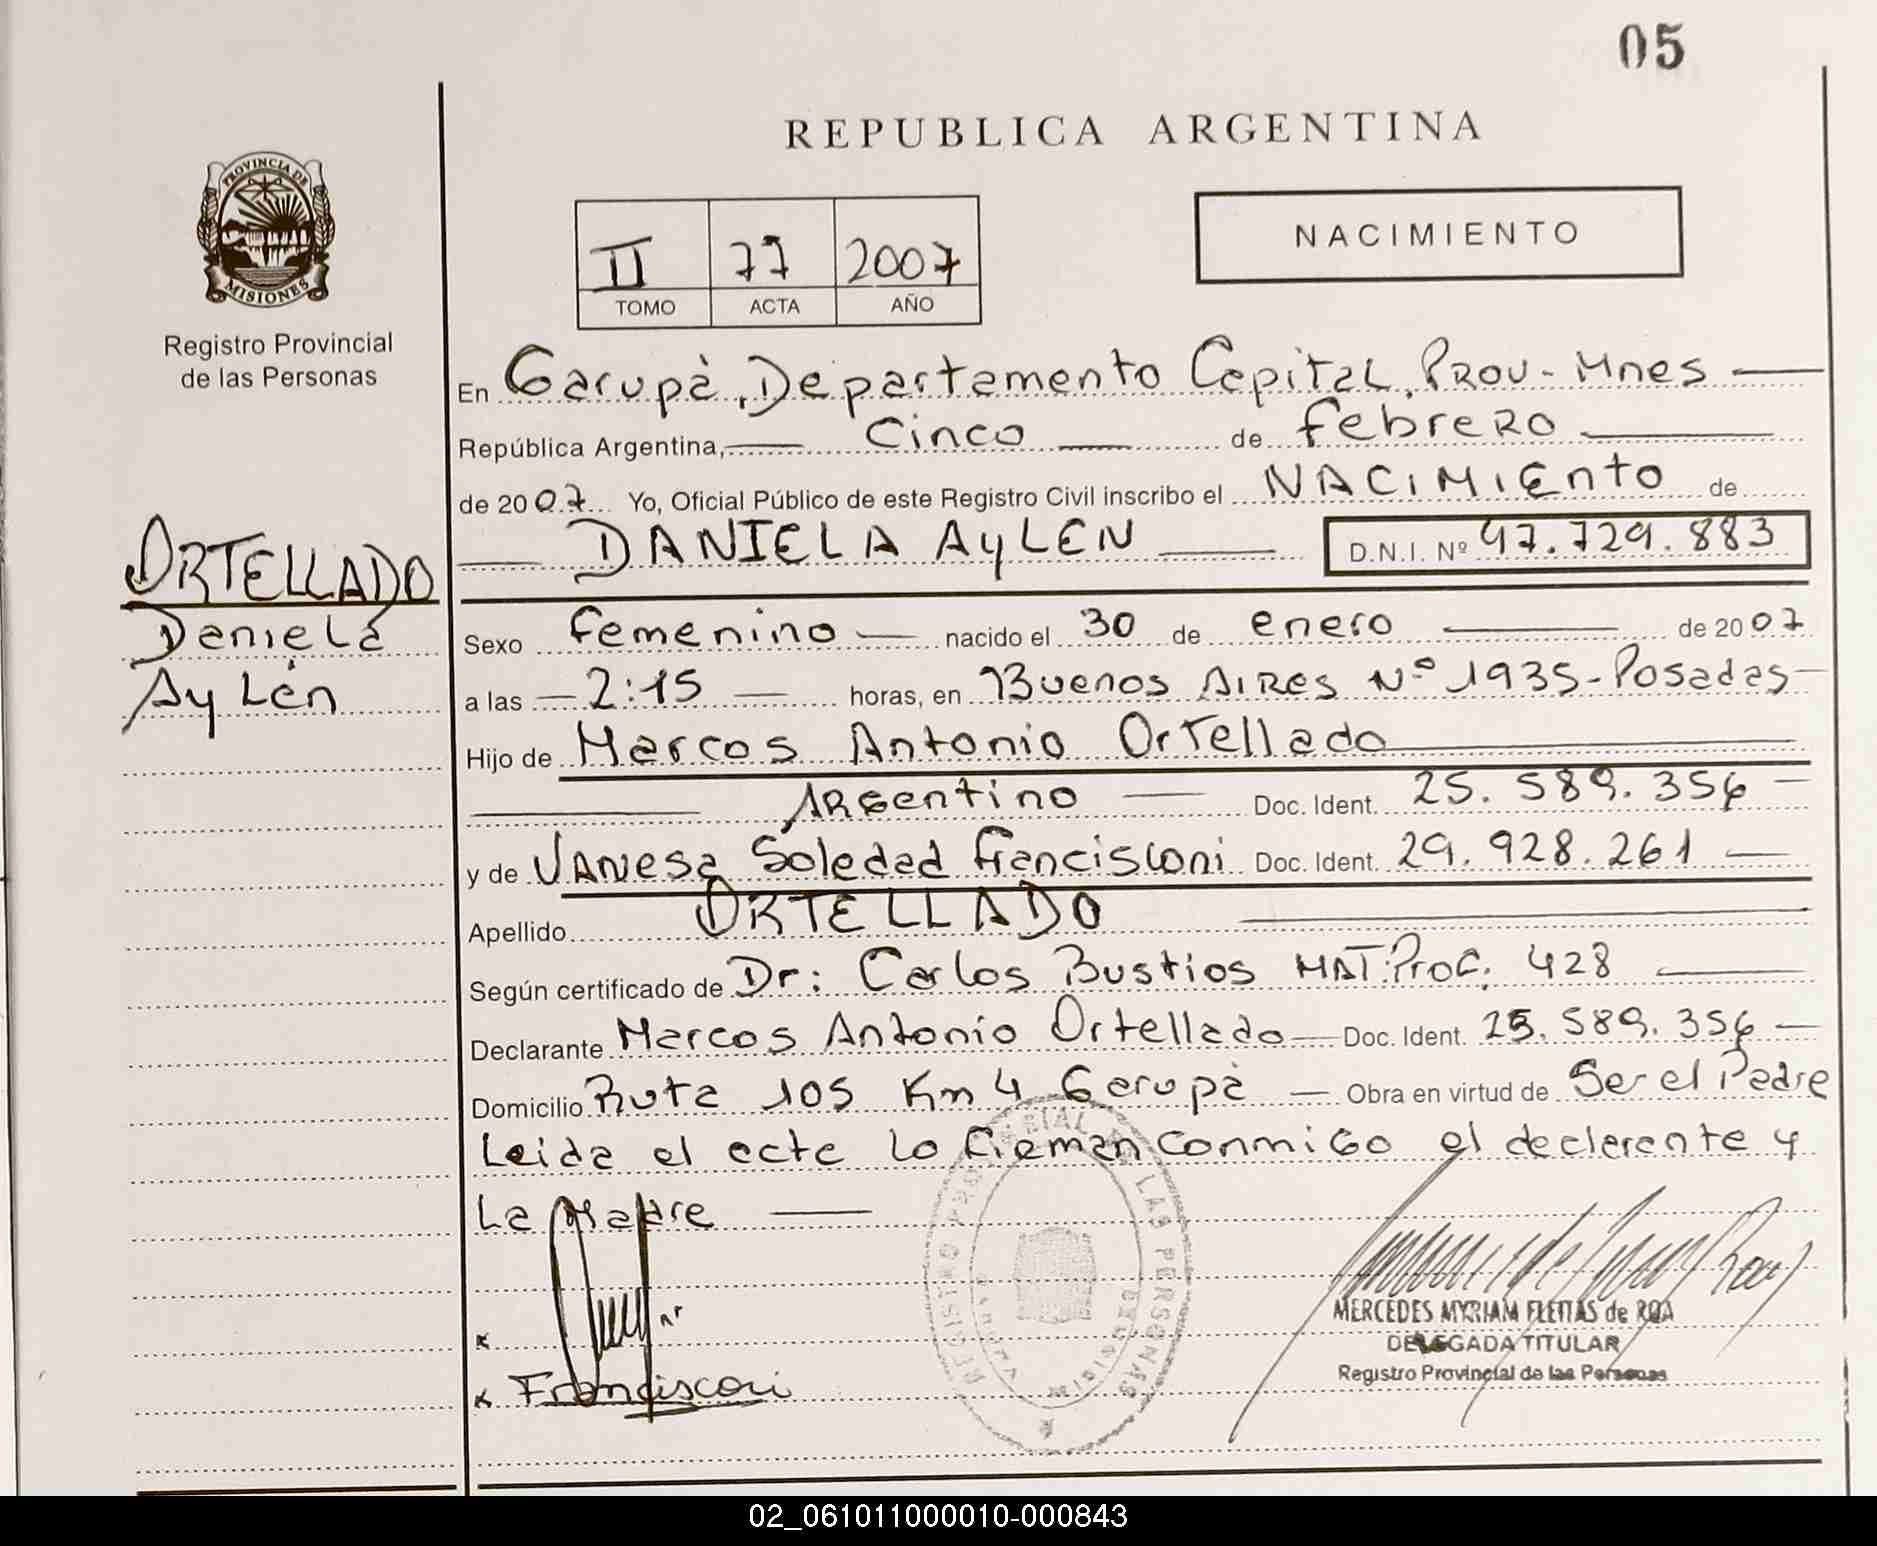 05
REPUBLICA ARGENTINA
PROVINCIA DE
MISIONES
Registro Provincial
de las Personas
II 77 2007
TOMO ACTA AÑO
NACIMIENTO
En Garupá, Departamento Capital, Prov - Mnes
República Argentina, Cinco de febrero
de 2007 Yo, Oficial Público de este Registro Civil inscribo el NACIMIENTO de
DANIELA AYLEN D.N.I. Nº 47.729.883
ORTELLADO
Daniela
Aylén
Sexo femenino nacido el 30 de enero de 2007
a las 2:15 horas, en Buenos Aires Nº 1935 - Posadas
Hijo de Marcos Antonio Ortellado
Argentino Doc. Ident. 25.589.356
y de Vanesa Soledad Francisconi Doc. Ident. 29.928.261
Apellido ORTELLADO
Según certificado de Dr: Carlos Bustios MAT. Prof. 428
Declarante Marcos Antonio Ortellado Doc. Ident. 25.589.356
Domicilio Ruta 105 Km 4 Garupá Obra en virtud de Ser el Padre
Leida el acta lo firman conmigo el declarante y
La Madre
REGISTRO PROVINCIAL DE LAS PERSONAS
x
x Francisconi
MERCEDES MYRIAM FLEITAS de ROA
DELEGADA TITULAR
Registro Provincial de las Personas
02_061011000010-000843